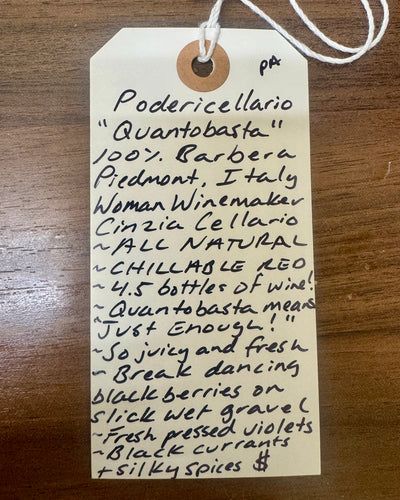 PA
Podericellario
"Quantobasta"
100% Barbera
Piedmont, Italy
Woman Winemaker
Cinzia Cellario
~ALL NATURAL
~CHILLABLE RED
~4.5 bottles of wine!
~Quantobasta means
"Just Enough!"
~So juicy and fresh
~Break dancing
blackberries on
slick wet gravel
~Fresh pressed violets
~Black currants
+silky spices $